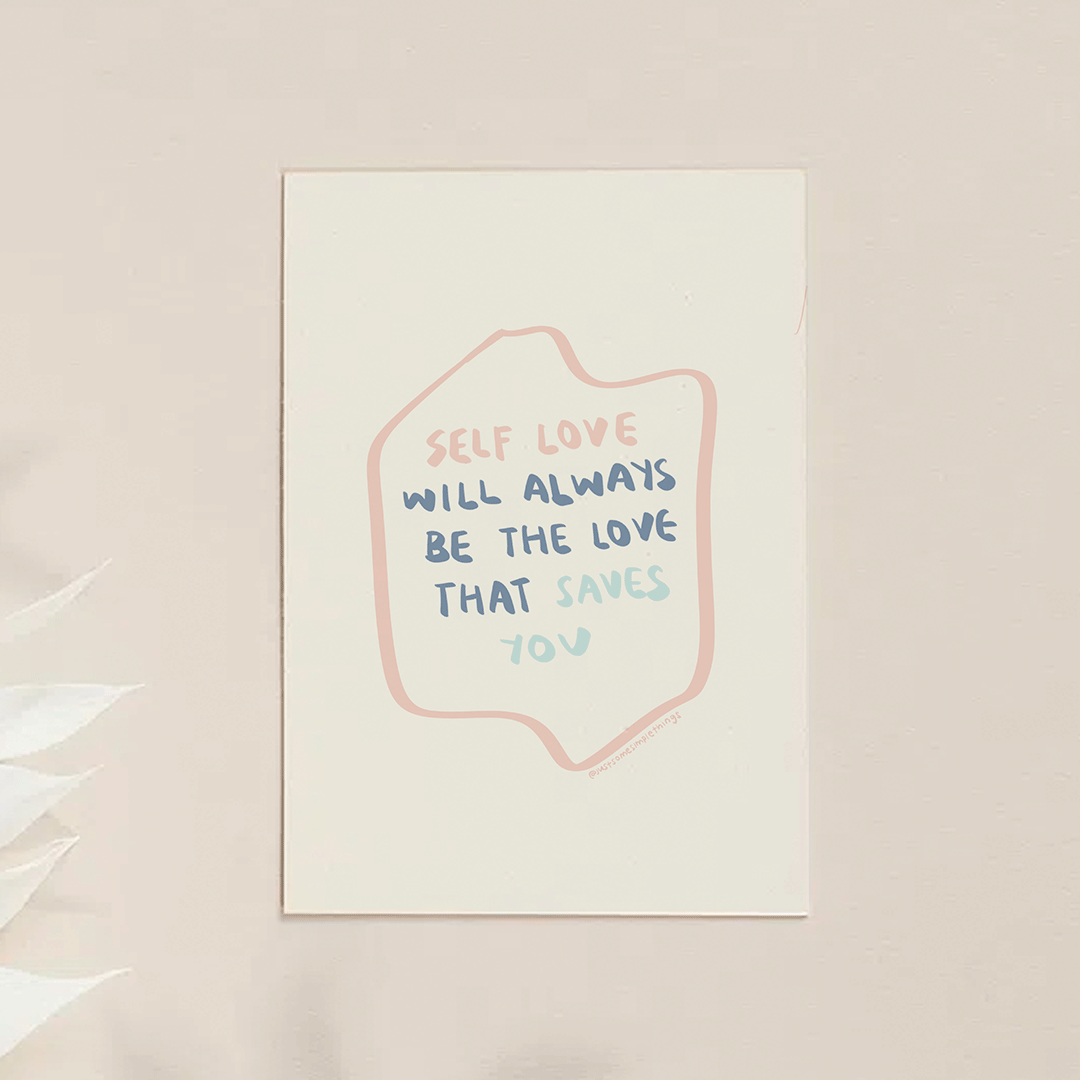 SELF LOVE
WILL ALWAYS
BE THE LOVE
THAT SAVES
YOU
@justsomesimplethings